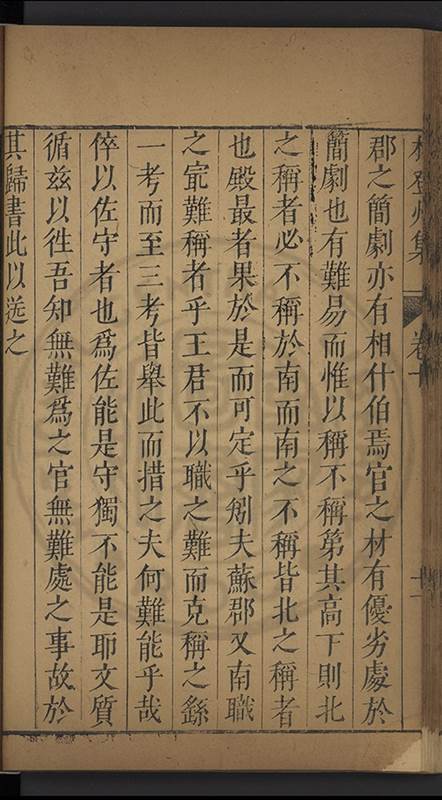 登州集 卷十 十一
郡之簡劇亦有相什伯焉官之材有優劣處於
簡劇也有難易而惟以稱不稱第其高下則北
之稱者必不稱於南而南之不稱皆北之稱者
也殿最者果於是而可定乎矧夫蘇郡又南職
之冣難稱者乎王君不以職之難而克稱之繇
一考而至三考皆舉此而措之夫何難能乎哉
倅以佐守者也爲佐能是守獨不能是耶文質
循兹以徃吾知無難爲之官無難處之事故於
其歸書此以送之